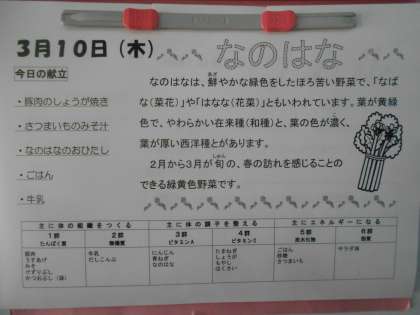 3月10日(木)
なのはな
今日の献立
・豚肉のしょうが焼き
・さつまいものみそ汁
・なのはなのおひたし
・ごはん
・牛乳
なのはなは、鮮やかな緑色をしたほろ苦い野菜で、「なば
な(菜花)」や「はなな(花菜)」ともいわれています。葉が黄緑
色で、やわらかい在来種(和種)と、葉の色が濃く、
葉が厚い西洋種とがあります。
2月から3月が旬の、春の訪れを感じることの
できる緑黄色野菜です。
主に体の組織をつくる 主に体の調子を整える 主にエネルギーになる
1群 2群 3群 4群 5群 6群
たんぱく質 無機質 ビタミンA ビタミンC 炭水化物 脂質
豚肉 牛乳 にんじん たまねぎ ごはん サラダ油
うすあげ だしこんぶ 青ねぎ しょうが 砂糖
みそ なのはな もやし さつまいも
けずりぶし はくさい
かつおぶし(糸)